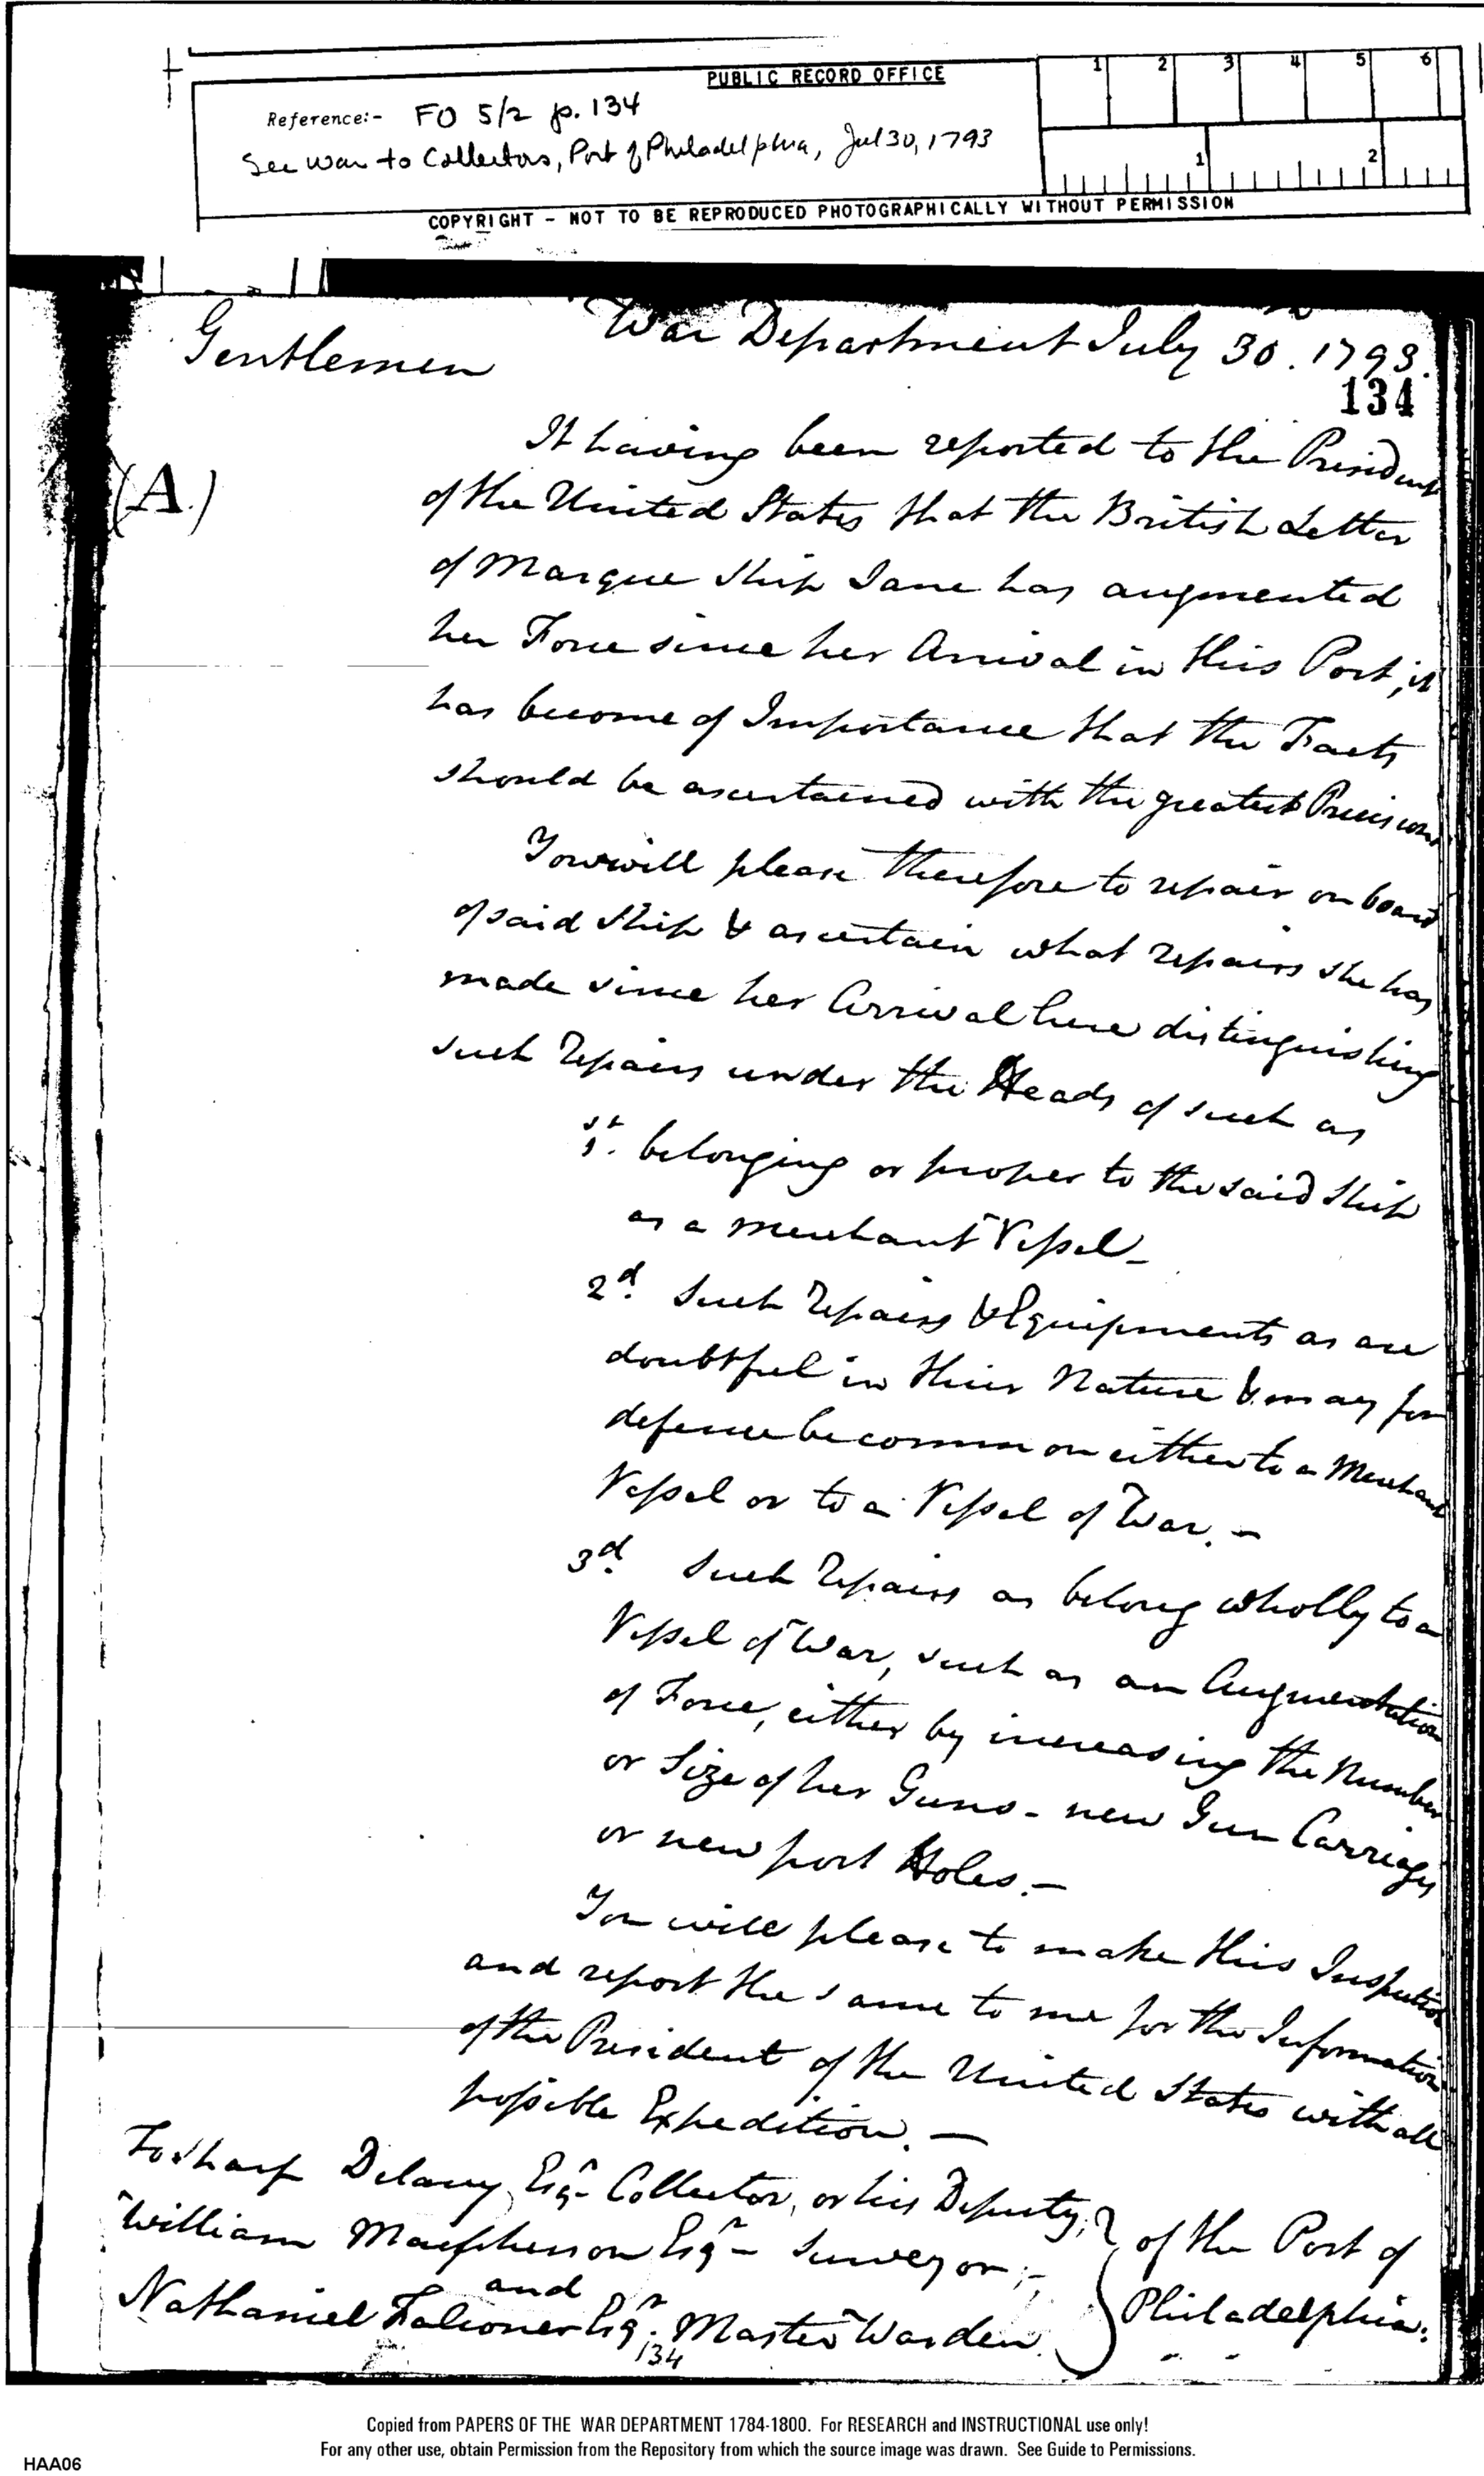 PUBLIC RECORD OFFICE
1 2 3 4 5 6
Reference:- FO 5/2 p. 134
See War to Collectors, Port of Philadelphia, Jul 30, 1793
1 2
COPYRIGHT - NOT TO BE REPRODUCED PHOTOGRAPHICALLY WITHOUT PERMISSION
War Department July 30. 1793.
Gentlemen
134
It having been reported to the President
(A.)
of the United States that the British Letter
of Marque Ship Jane has augmented
her Force since her Arrival in this Port, it
has become of Importance that the Facts
should be ascertained with the greatest Precision
You will please therefore to repair on board
of said Ship & ascertain what repairs she has
made since her Arrival here distinguishing
such Repairs under the Heads of such as
1st. belonging or proper to the said Ship
as a merchant Vessel_
2d. Such Repairs & Equipments as are
doubtful in their Nature & may for
defence be common either to a Merchant
Vessel or to a Vessel of War. -
3d. Such Repairs as belong wholly to a
Vessel of War, such as an Augmentation
of Force, either by increasing the Number
or Size of her Guns - new Gun Carriages
or new port Holes. -
You will please to make this Inspection
and report the same to me for the Information
of the President of the United States with all
possible Expedition. -
To Sharp Delany, Esqr. Collector, or his Deputy;
William Macpherson Esqr. Surveyor; -
} of the Port of
and
Nathaniel Falconer Esqr. Master Warden.
Philadelphia.
134
Copied from PAPERS OF THE WAR DEPARTMENT 1784-1800. For RESEARCH and INSTRUCTIONAL use only!
For any other use, obtain Permission from the Repository from which the source image was drawn. See Guide to Permissions.
HAA06